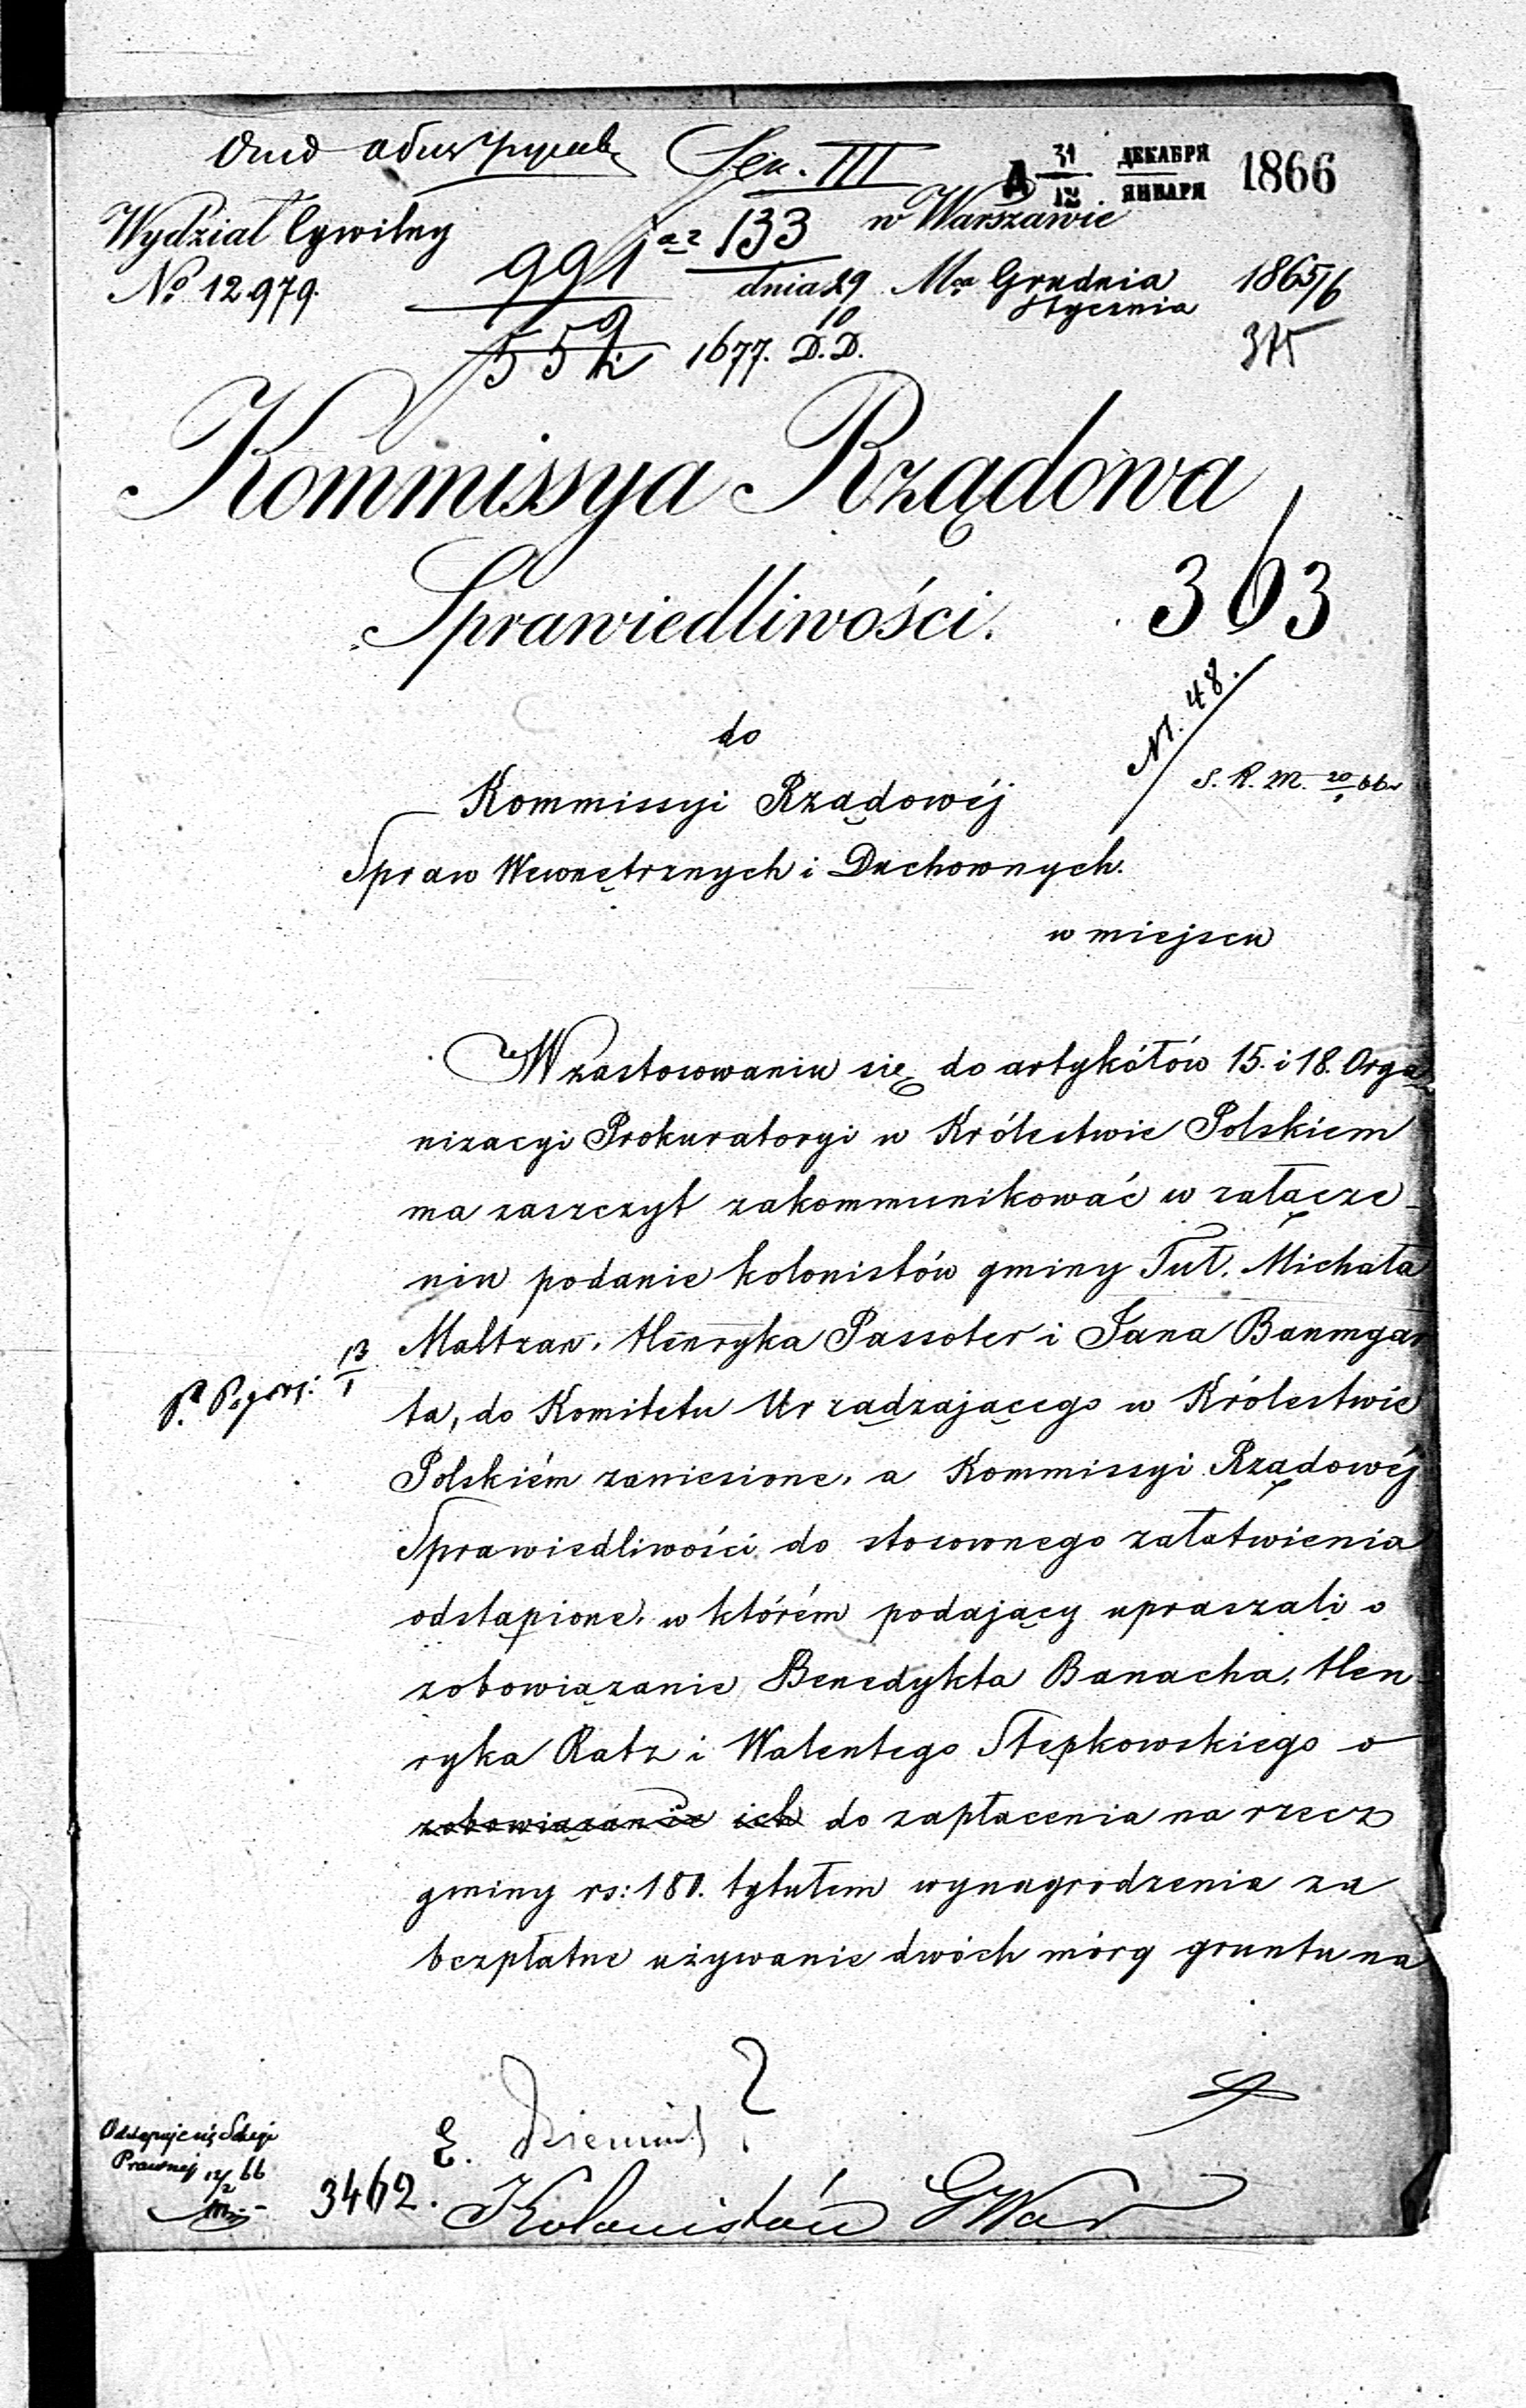 Sek. III
А 31/12 ДЕКАБРЯ/ЯНВАРЯ 1866
Wydział Cywilny
w Warszawie
No 12979.
991 133
dnia 29/10 Mca Grudnia/Stycznia 1865/6
552 1677. D.D.
375
Kommissya Rządowa
Sprawiedliwości.
363
N. 48.
do
S. R. M. 20/1 66
Kommissyi Rządowéj
Spraw Wewnętrznych i Duchownych.
w miejscu
W zastosowaniu się do artykółów 15. i 18. Orga
nizacyi Prokuratoryi w Królestwie Polskiem
ma zaszczyt zakommunikować w załącze-
niu podanie kolonistów gminy Tuł. Michała
Maltzan, Henryka Passoter i Jana Baumgar
ta, do Komitetu Urządzającego w Królestwie
13/1
Polskiém zaniesione, a Kommissyi Rządowéj
Sprawiedliwości do stosownego załatwienia
odstąpione, w którém podający upraszali o
zobowiązanie Benedykta Banacha, Hen-
ryka Ratz i Walentego Stępkowskiego o
zobowiązanie ich do zapłacenia na rzecz
gminy rs: 180. tytułem wynagrodzenia za
bezpłatne używanie dwóch mórg gruntu na
Odstępuje się Sekcyi
Prawnej 12/2 66
3462. Kolonistów GWar